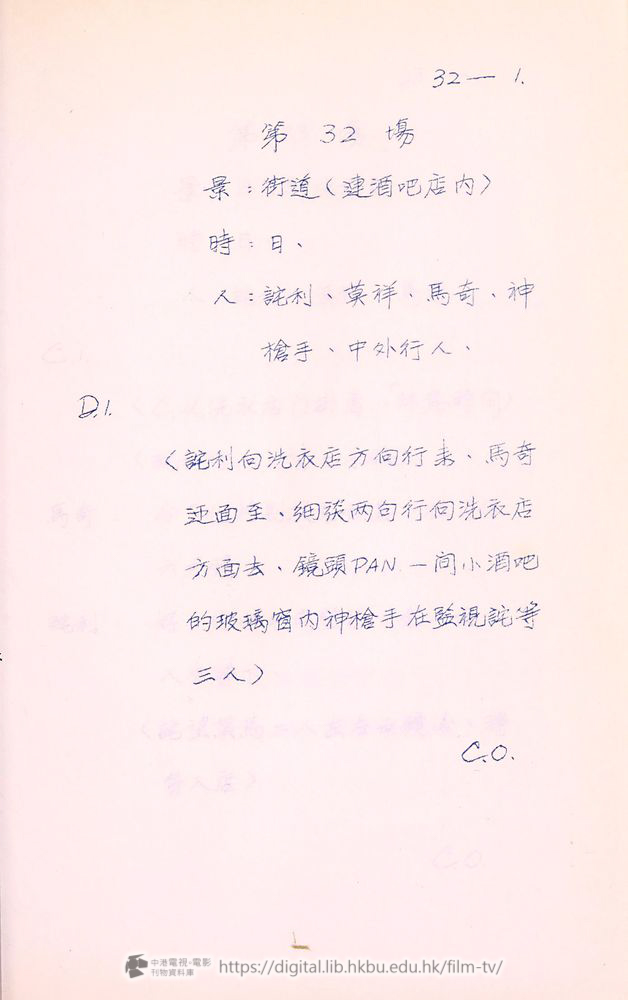 32— 1.
第 32 場
景：街道（連酒吧店内）
時：日、
人：詫利、莫祥、馬奇、神
槍手、中外行人、
D.1.
（詫利向洗衣店方向行来、馬奇
迎面至、細談两句行向洗衣店
方面去、鏡頭PAN 一间小酒吧
的玻璃窗内神槍手在監視詫等
三人）
C.O.
中港電視·電影
刊物資料庫
https://digital.lib.hkbu.edu.hk/film-tv/